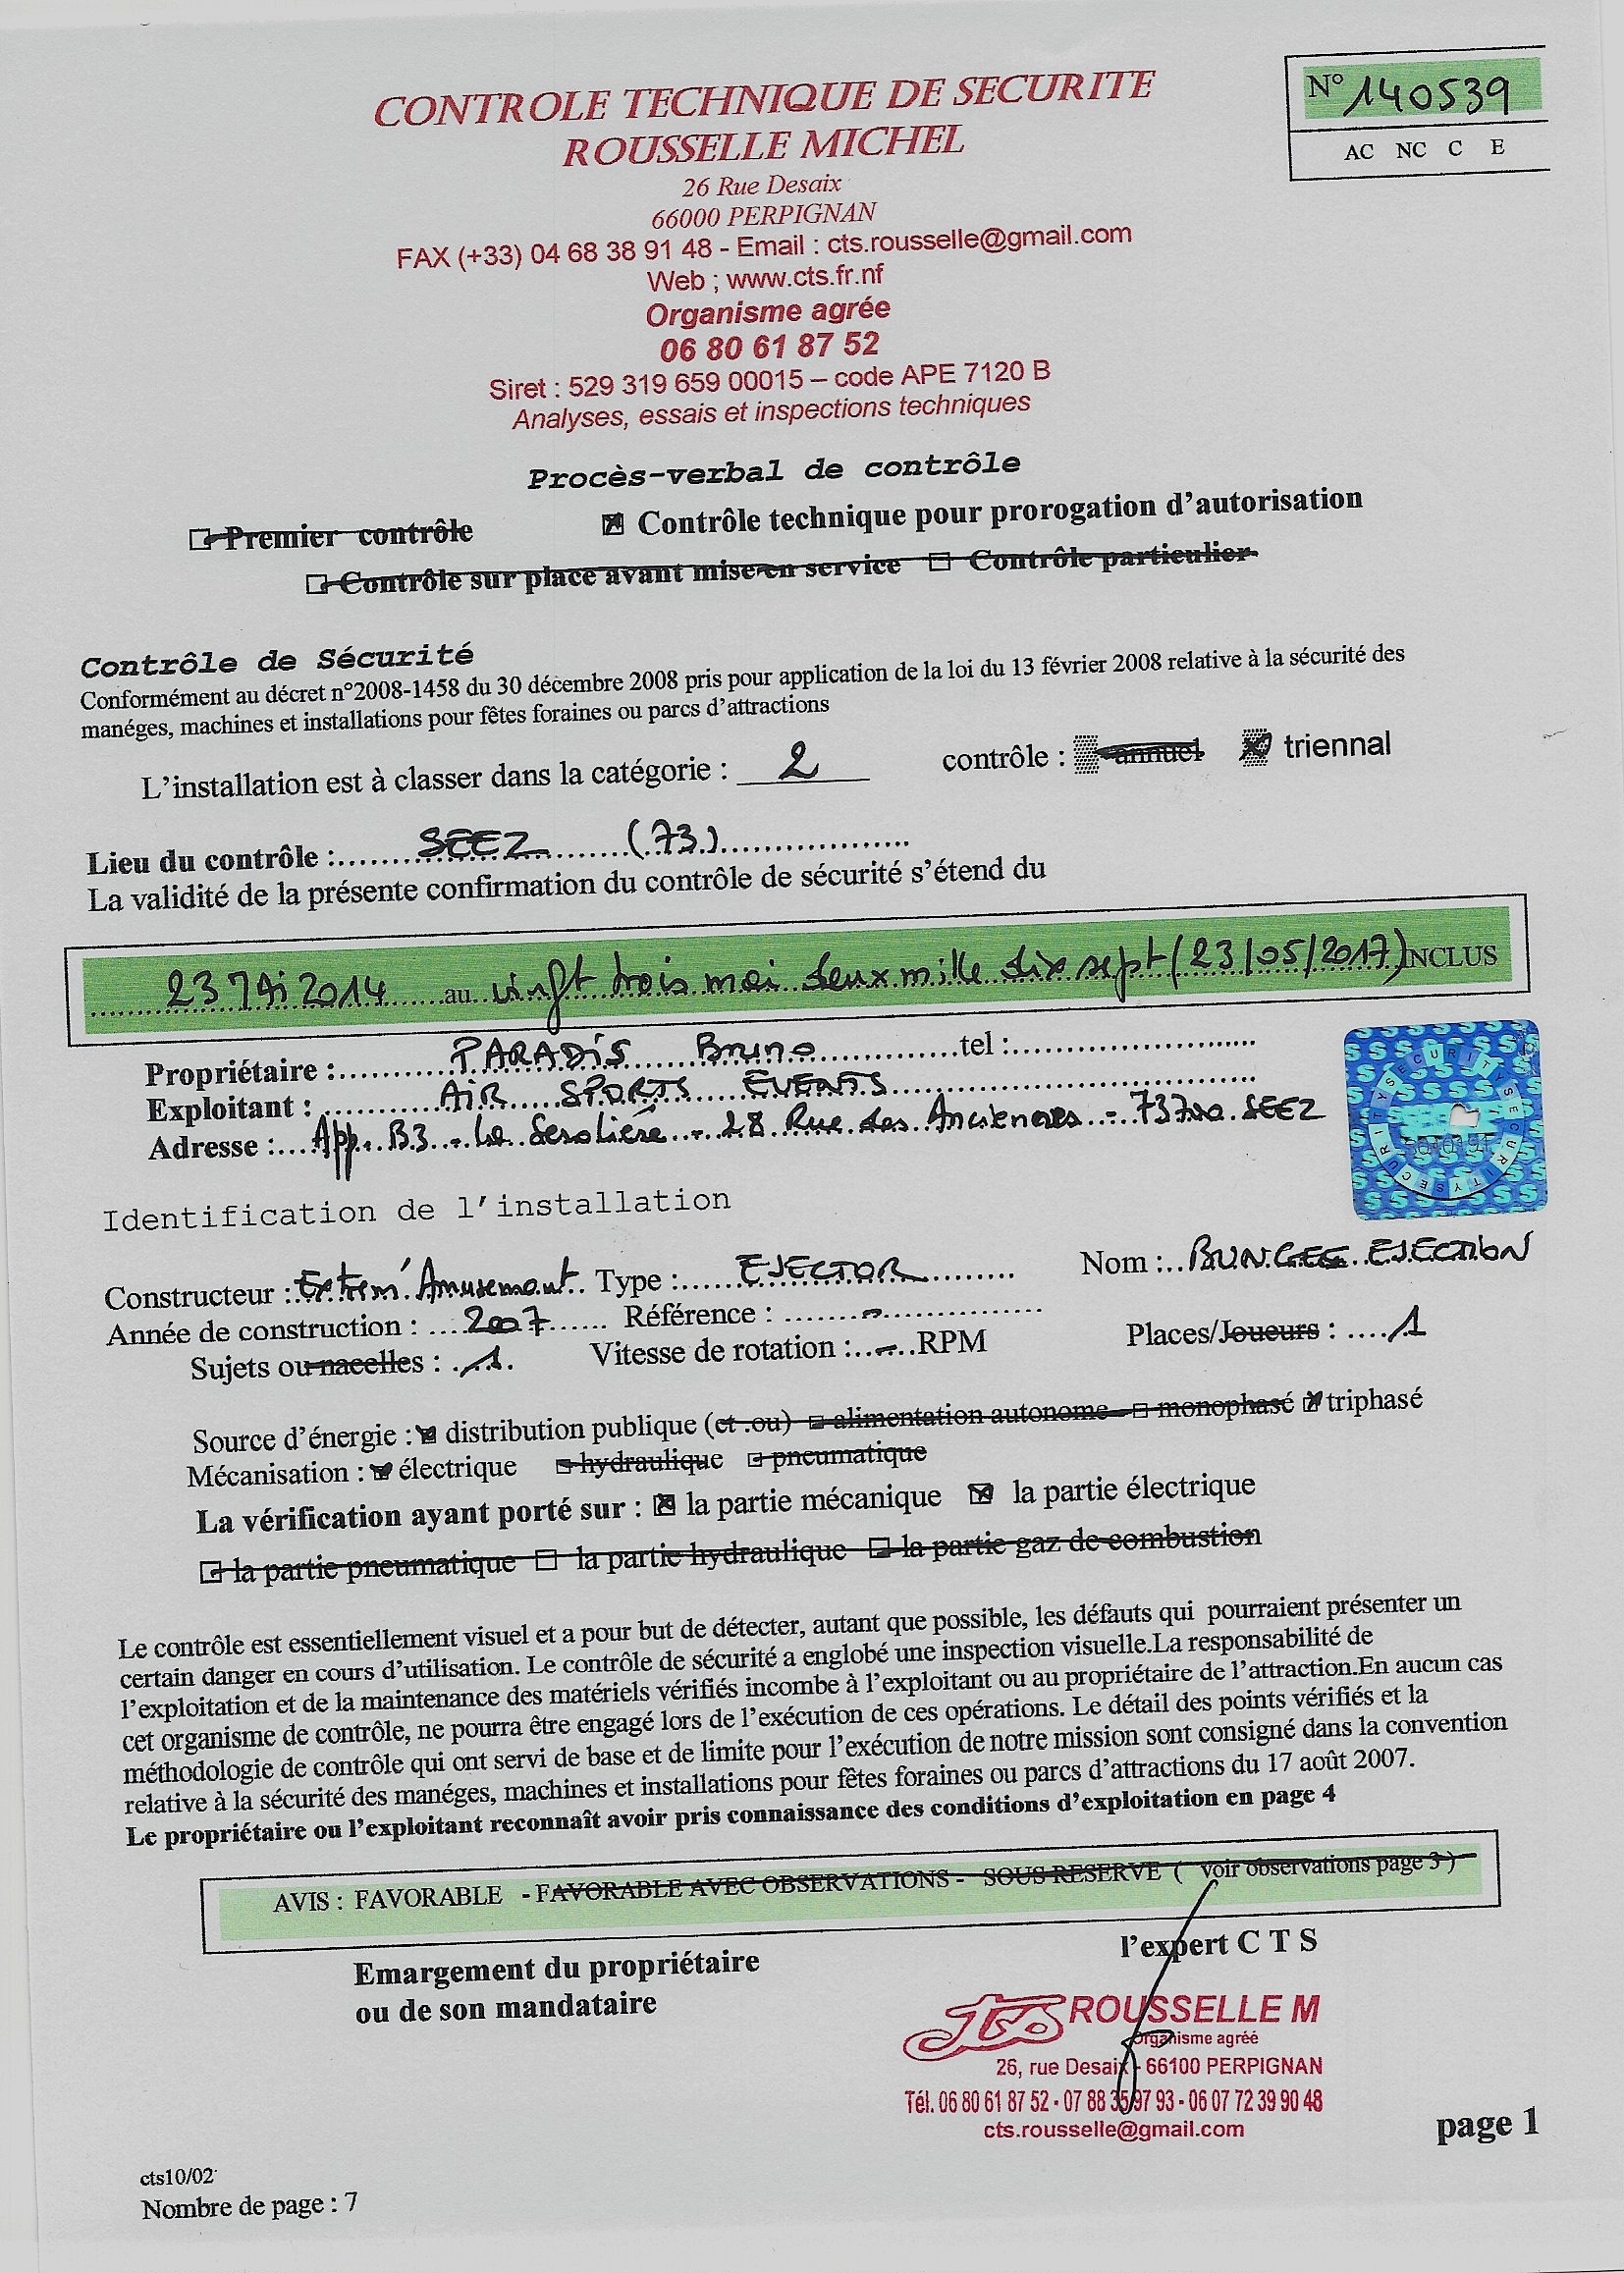 N° 140539
AC NC C E
CONTROLE TECHNIQUE DE SECURITE
ROUSSELLE MICHEL
26 Rue Desaix
66000 PERPIGNAN
FAX (+33) 04 68 38 91 48 - Email : cts.rousselle@gmail.com
Web ; www.cts.fr.nf
Organisme agrée
06 80 61 87 52
Siret : 529 319 659 00015 – code APE 7120 B
Analyses, essais et inspections techniques
Procès-verbal de contrôle
Premier contrôle Contrôle technique pour prorogation d'autorisation
Contrôle sur place avant mise en service Contrôle particulier
Contrôle de Sécurité
Conformément au décret n°2008-1458 du 30 décembre 2008 pris pour application de la loi du 13 février 2008 relative à la sécurité des
manéges, machines et installations pour fêtes foraines ou parcs d'attractions
L'installation est à classer dans la catégorie : 2 contrôle : annuel triennal
Lieu du contrôle : SEEZ (73)
La validité de la présente confirmation du contrôle de sécurité s'étend du
23 MAi 2014 au vingt trois mai deux mille dix sept (23/05/2017) INCLUS
Propriétaire : PARADIS Bruno tel :
Exploitant : AIR SPORTS EVENTS
Adresse : App. B3 - La - 28 Rue des - 73700 SEEZ
Identification de l'installation
Constructeur : Extrem' Amusement Type : EJECTOR Nom : BUNGEE EJECTION
Année de construction : 2007 Référence : -
Sujets ou nacelles : 1 Vitesse de rotation : - RPM Places/Joueurs : 1
Source d'énergie : distribution publique (et .ou) alimentation autonome monophasé triphasé
Mécanisation : électrique hydraulique pneumatique
La vérification ayant porté sur : la partie mécanique la partie électrique
la partie pneumatique la partie hydraulique la partie gaz de combustion
Le contrôle est essentiellement visuel et a pour but de détecter, autant que possible, les défauts qui pourraient présenter un
certain danger en cours d'utilisation. Le contrôle de sécurité a englobé une inspection visuelle.La responsabilité de
l'exploitation et de la maintenance des matériels vérifiés incombe à l'exploitant ou au propriétaire de l'attraction.En aucun cas
cet organisme de contrôle, ne pourra être engagé lors de l'exécution de ces opérations. Le détail des points vérifiés et la
méthodologie de contrôle qui ont servi de base et de limite pour l'exécution de notre mission sont consigné dans la convention
relative à la sécurité des manéges, machines et installations pour fêtes foraines ou parcs d'attractions du 17 août 2007.
Le propriétaire ou l'exploitant reconnaît avoir pris connaissance des conditions d'exploitation en page 4
AVIS : FAVORABLE - FAVORABLE AVEC OBSERVATIONS - SOUS RESERVE ( voir observations page 3 )
Emargement du propriétaire
ou de son mandataire
l'expert C T S
ROUSSELLE M
Organisme agréé
26, rue Desaix - 66100 PERPIGNAN
Tél. 06 80 61 87 52 - 07 88 35 97 93 - 06 07 72 39 90 48
cts.rousselle@gmail.com
page 1
cts10/02
Nombre de page : 7